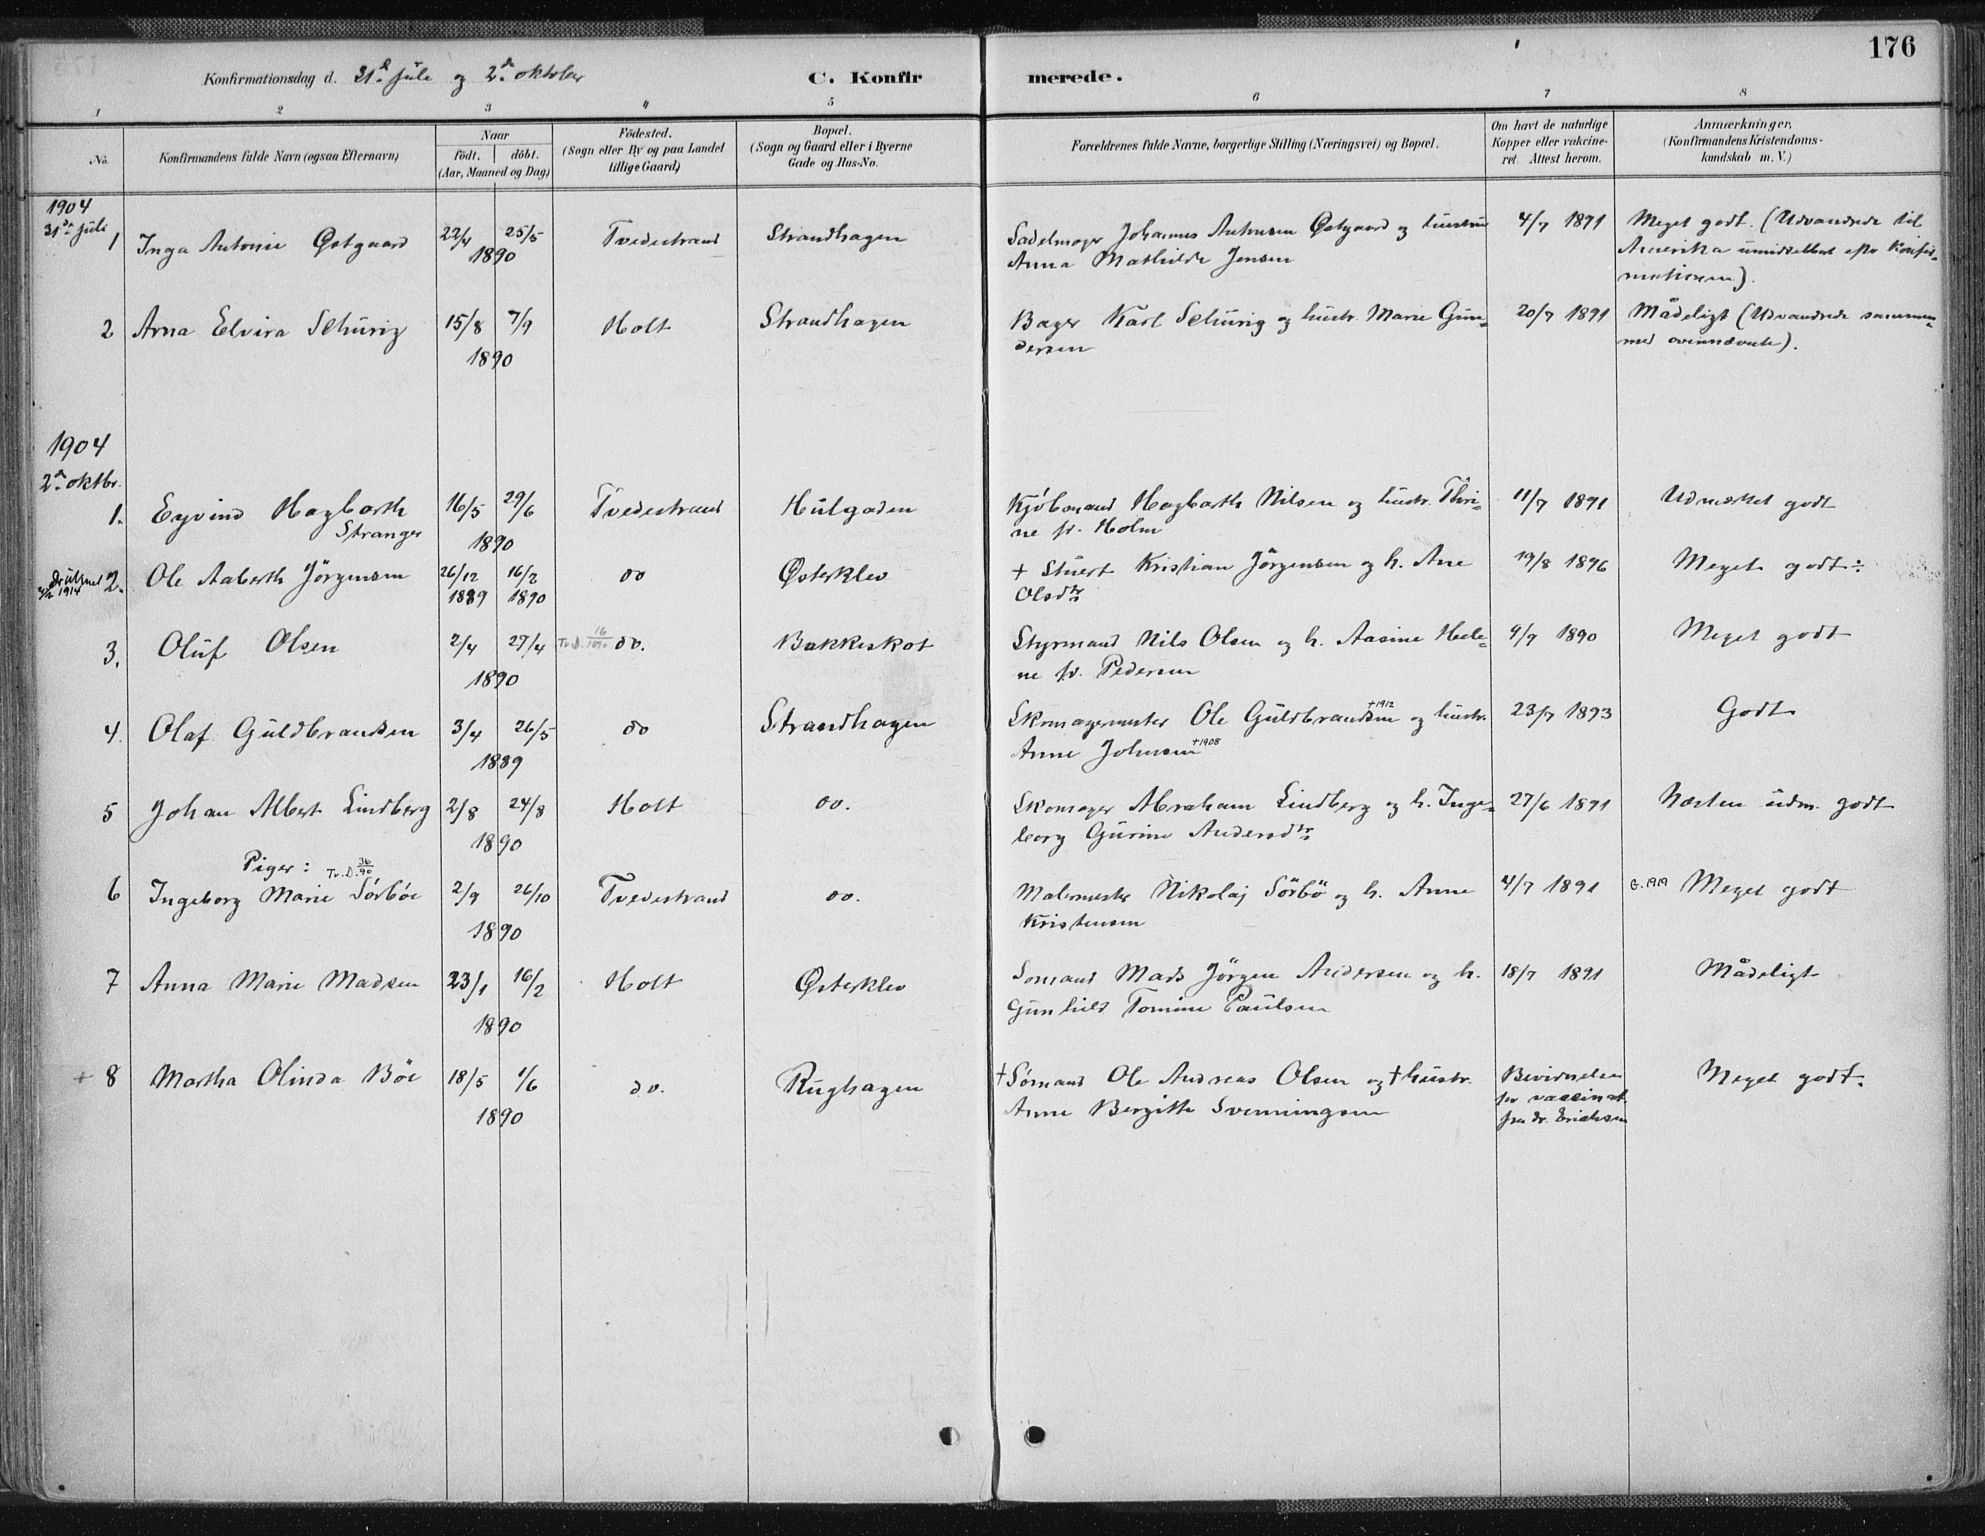 176
Konfirmationsdag d. 31d. juli og 2d. oktober C. Konfirmerede.
1 2 3 4 5 6 7 8
No.
Konfirmandens fulde Navn (ogsaa Efternavn)
Naar
födt. döbt.
(Aar, Maaned og Dag)
Födested.
(Sogn eller By og paa Landet
tillige Gaard)
Bopæl.
(Sogn og Gaard eller i Byerne
Gade og Hus-No.
Forældrenes fulde Navne, borgerlige Stilling (Næringsvei) og Bopæl.
Om havt de naturlige
Kopper eller vakcine-
ret. Attest herom.
Anmærkninger.
(Konfirmandens Kristendoms-
kundskab m. V.)
1904
31te juli
1 Inga Antonie Østgaard 22/4 25/5 1890 Tvedestrand Strandhagen
Sadelmager Johannes Antonsen Østgaard og hustru
Anna Mathilde Jensen
4/7 1891
Meget godt. (Udvandrede til
Amerika umiddelbart efter konfir-
mationen).
2 Arna Elvira Schurig 15/8 7/9 1890 Holt Strandhagen
Bager Karl Schurig og hustr. Marie Gun-
dersen
20/7 1891
Mådeligt (Udvandrede sammen
med ovennævnte).
1904
2d. oktbr.
1. Eyvind Hagbarth 16/5 29/6 1890 Tvedestrand Hulgaden
Stranger
Kjöbmand Hagbarth Nilsen og hustr. Thri-
ne f. Holm
11/7 1891 Udmærket godt
1914
2. Ole Aaberth Jörgensen 26/12 1889 16/2 1890 do Østerklev
+ Stuert Kristian Jörgensen og h. Ane
Olsdtr
19/8 1896 Meget godt÷
3. Oluf Olsen 2/4 27/4 1890 Tv.D. 16/1890 do. Bakkeskot
Styrmand Nils Olsen og h. Aasine Hele-
ne f. Pedersen
9/9 1890 Meget godt
4. Olaf Guldbrandsen 3/4 26/5 1889 do Strandhagen
Skomagermester Ole Guldbrandsen +1912 og hustr.
Anne Johnsen +1908
23/7 1893 Godt
5 Johan Albert Lindberg 2/8 24/8 1890 Holt do.
Skomager Abraham Lindberg og h. Inge-
borg Gurine Andersdtr
27/6 1891 Næsten udm. godt
Piger: Tv.D. 36/90
6 Ingeborg Marie Sörböe 2/9 26/10 1890 Tvedestrand do.
Malermester Nikolaj Sörbö og h. Anne
Kristensen
4/7 1891 G. 1919 Meget godt
7 Anna Marie Madsen 23/1 16/2 1890 Holt Østerklev
Sömand Mads Jörgen Andersen og h.
Gunhild Tomine Paulsen
18/7 1891 Mådeligt
+ 8 Martha Olinda Böe 18/5 1/6 1890 do. Rughagen
+Sömand Ole Andreas Olsen og +hustr.
Anne Bergitte Svenningsen
Bevidnelse
for vaccinat.
fra dr. Erichsen
Meget godt.